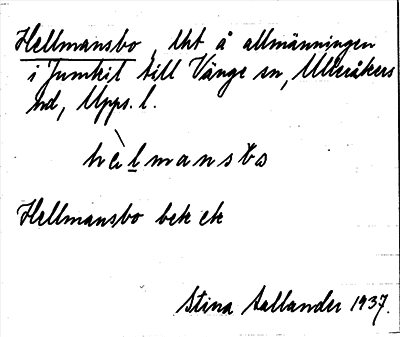 Hellmansbo, lht å allmänningen
i Jumkil till Vänge sn, Ulleråkers
hd, Upps. l.
hèlmansbo
Hellmansbo bek ek
Stina Sallander 1937.